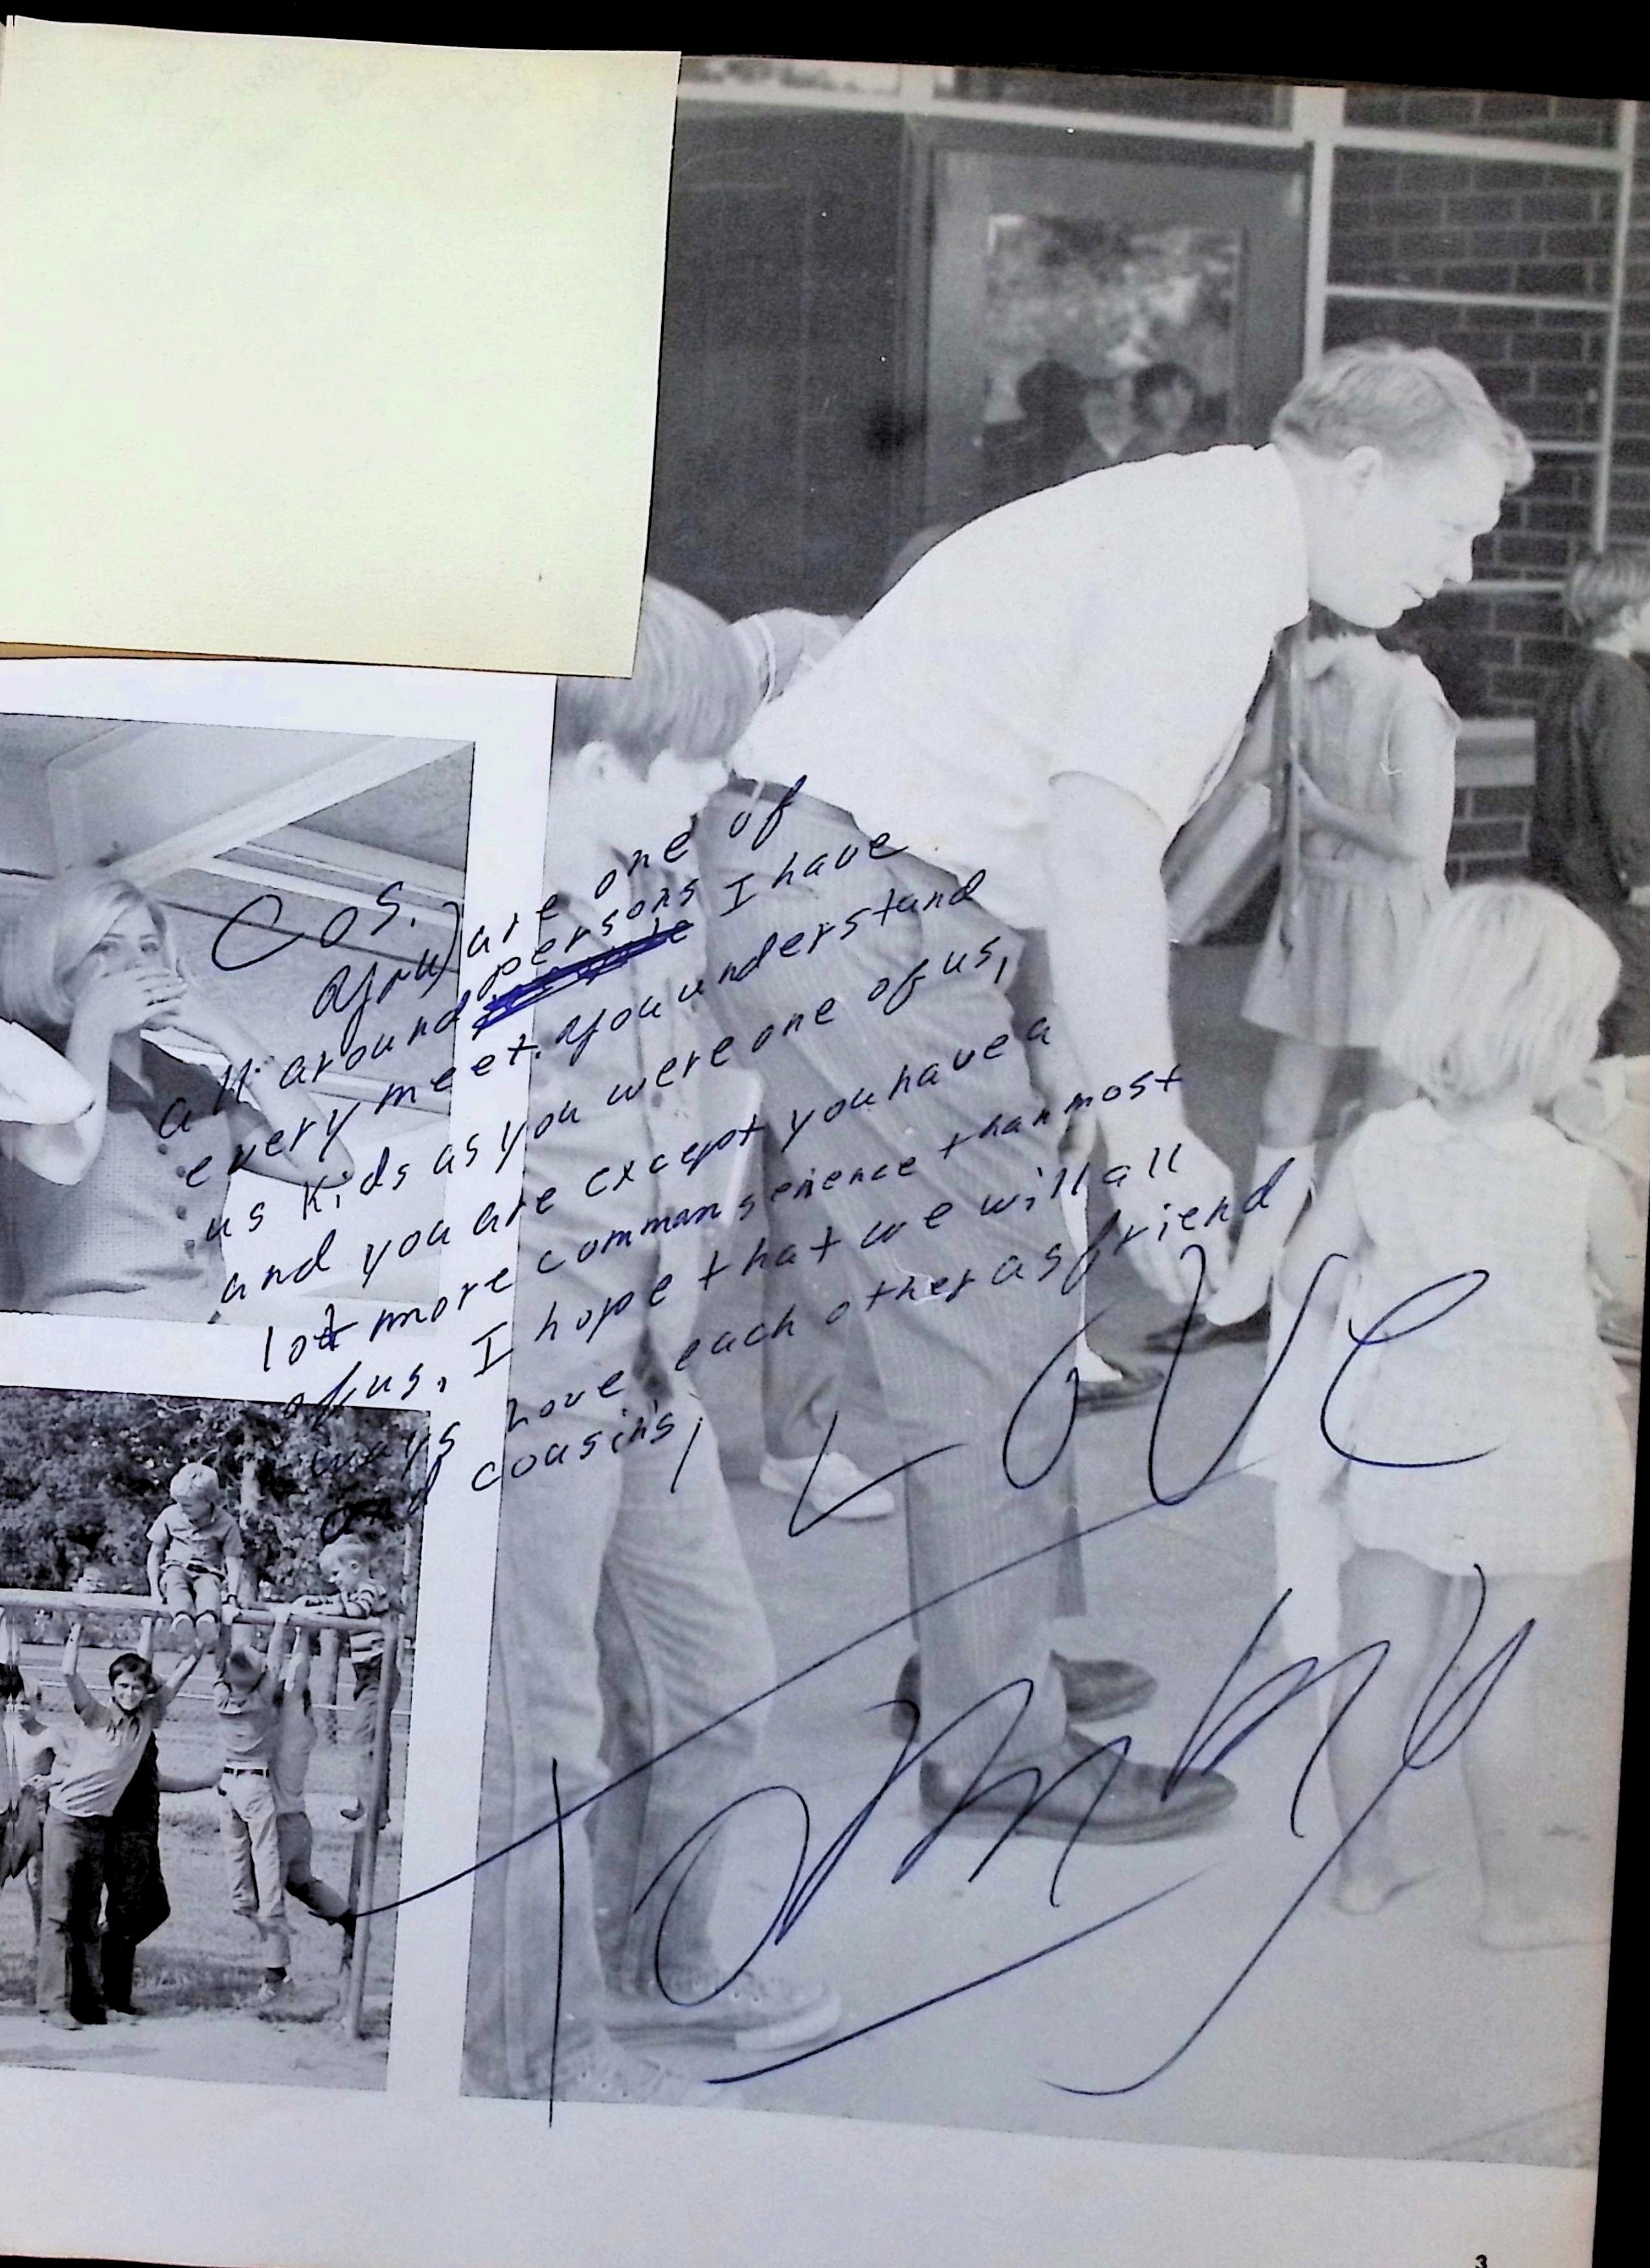 Cos.
You are one of
all around persons I have
every meet. You understand
us kids as you were one of us,
and you are except you have a
lot more comman senience than most
of us. I hope that we will all
ways have each other as friend
and cousins,
Love
Tommy
3